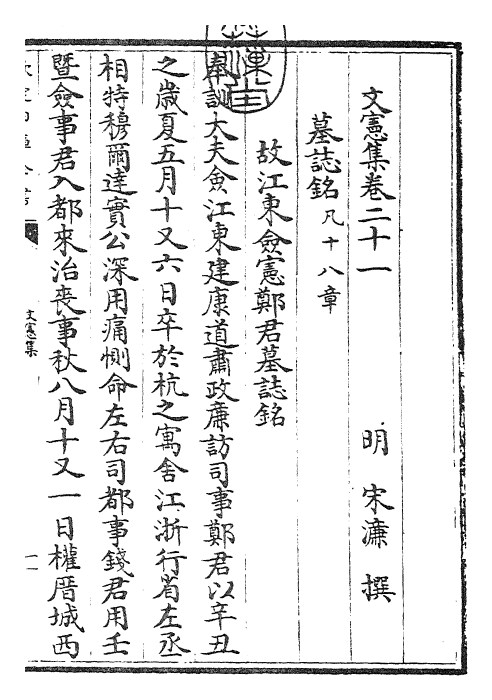 文憲集卷二十一
明 宋濂 撰
墓誌銘凡十八章
故江東僉憲鄭君墓誌銘
奉訓大夫僉江東建康道肅政廉訪司事鄭君以辛丑
之歲夏五月十又六日卒於杭之寓舍江浙行省左丞
相特穆爾達實公深用痛惻命左右司都事錢君用壬
暨僉事君入都來治喪事秋八月十又一日權厝城西
文憲集
一